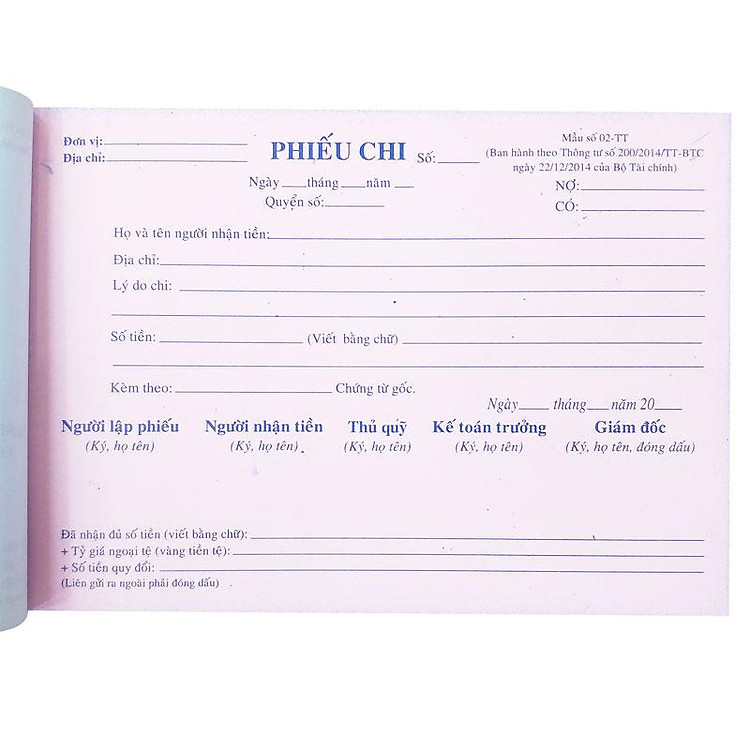 Đơn vị:
Địa chỉ:
PHIẾU CHI Số:
Ngày tháng năm
Quyển số:
Mẫu số 02-TT
(Ban hành theo Thông tư số 200/2014/TT-BTC
ngày 22/12/2014 của Bộ Tài chính)
NỢ:
CÓ:
Họ và tên người nhận tiền:
Địa chỉ:
Lý do chi:
Số tiền: (Viết bằng chữ)
Kèm theo: Chứng từ gốc.
Ngày tháng năm 20
Người lập phiếu Người nhận tiền Thủ quỹ Kế toán trưởng Giám đốc
(Ký, họ tên) (Ký, họ tên) (Ký, họ tên) (Ký, họ tên) (Ký, họ tên, đóng dấu)
Đã nhận đủ số tiền (viết bằng chữ):
+ Tỷ giá ngoại tệ (vàng tiền tệ):
+ Số tiền quy đổi:
(Liên gửi ra ngoài phải đóng dấu)